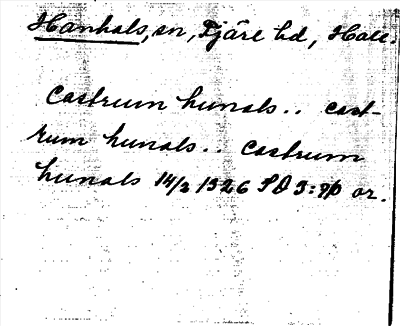 Hanhals, sn, Fjäre hd, Hall.
Castrum hunals.. cast-
rum hunals.. castrum
hunals 14/3 1326 SD 3: or.